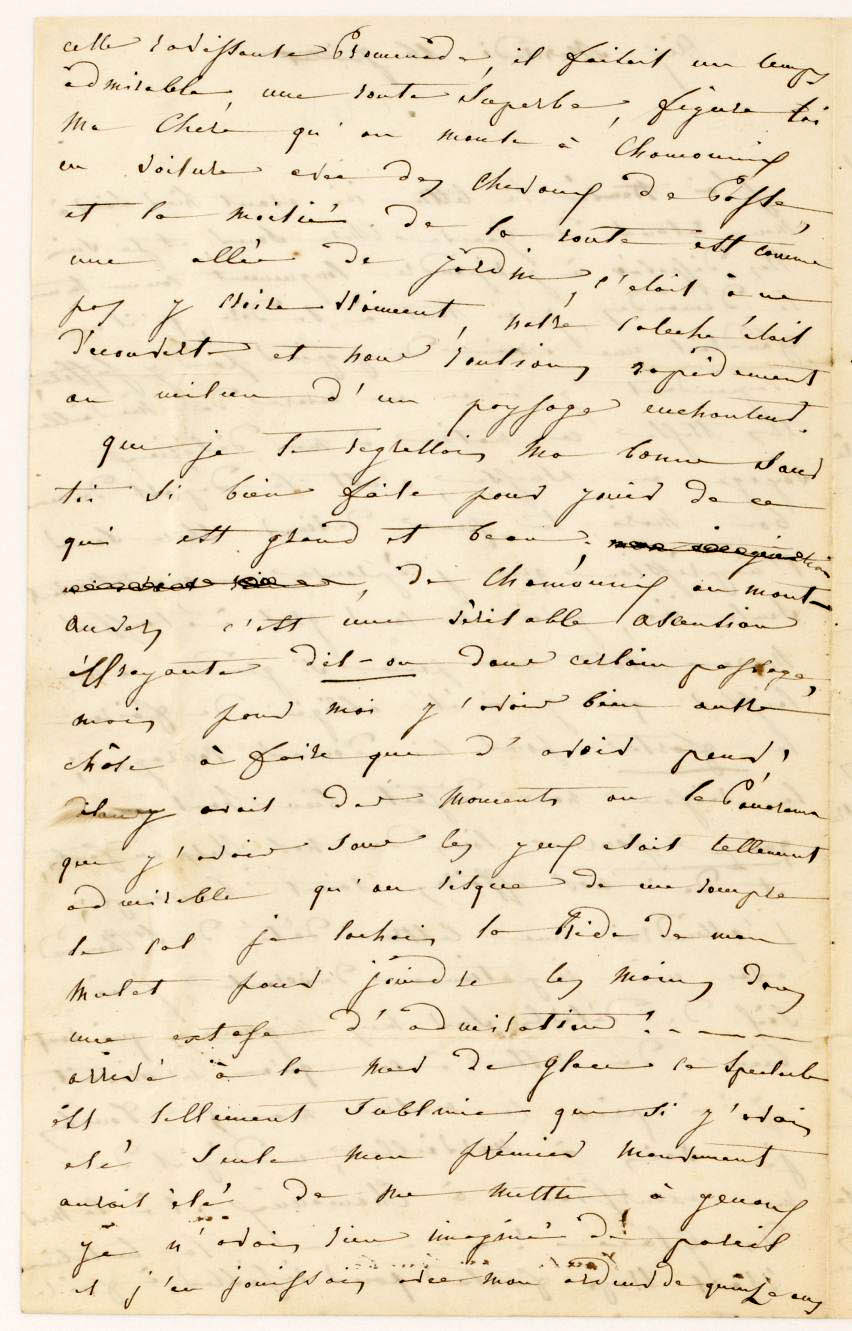 cette ravissante Promenade, il faisait un temps
admirable, une route Superbe, figure toi
Ma Chère qu'on monte à Chamounix
en voiture avec des chevaux de Poste,
et la moitié de la route est comme
une allée de jardin, c'était à ne
pas y croire vraiment, notre caleche était
découverte et nous roulions rapidement
au milieu d'un paysage enchanteur.
que je te regrettais ma bonne
toi si bien faite pour jouir de ce
qui est grand et beau.
de Chamounix au mont-
anvers c'est une véritable ascention
éffrayante dit-on dans certain passage,
mais pour moi j'avais bien autre
chôse à faire que d'avoir peur,
il y avait des moments ou le Panorama
que j'avais sous les yeux etait tellement
admirable qu'au risque de me rompre
le col je lachais la Bride de mon
mulet pour joindre les mains dans
une extase d'admiration! - - - -
arrivé à la mer de glace ce spectacle
est tellement Sublime que si j'avais
eté Seule mon prémier mouvement
aurait été de me mettre à genoux
je n'avais rien imaginé de pareil
et j'en jouissais avec mon ardeur de quinze ans